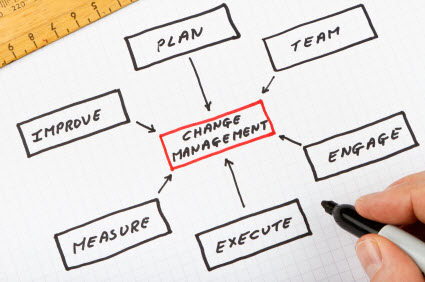 PLAN
TEAM
IMPROVE
CHANGE
MANAGEMENT
ENGAGE
MEASURE
EXECUTE